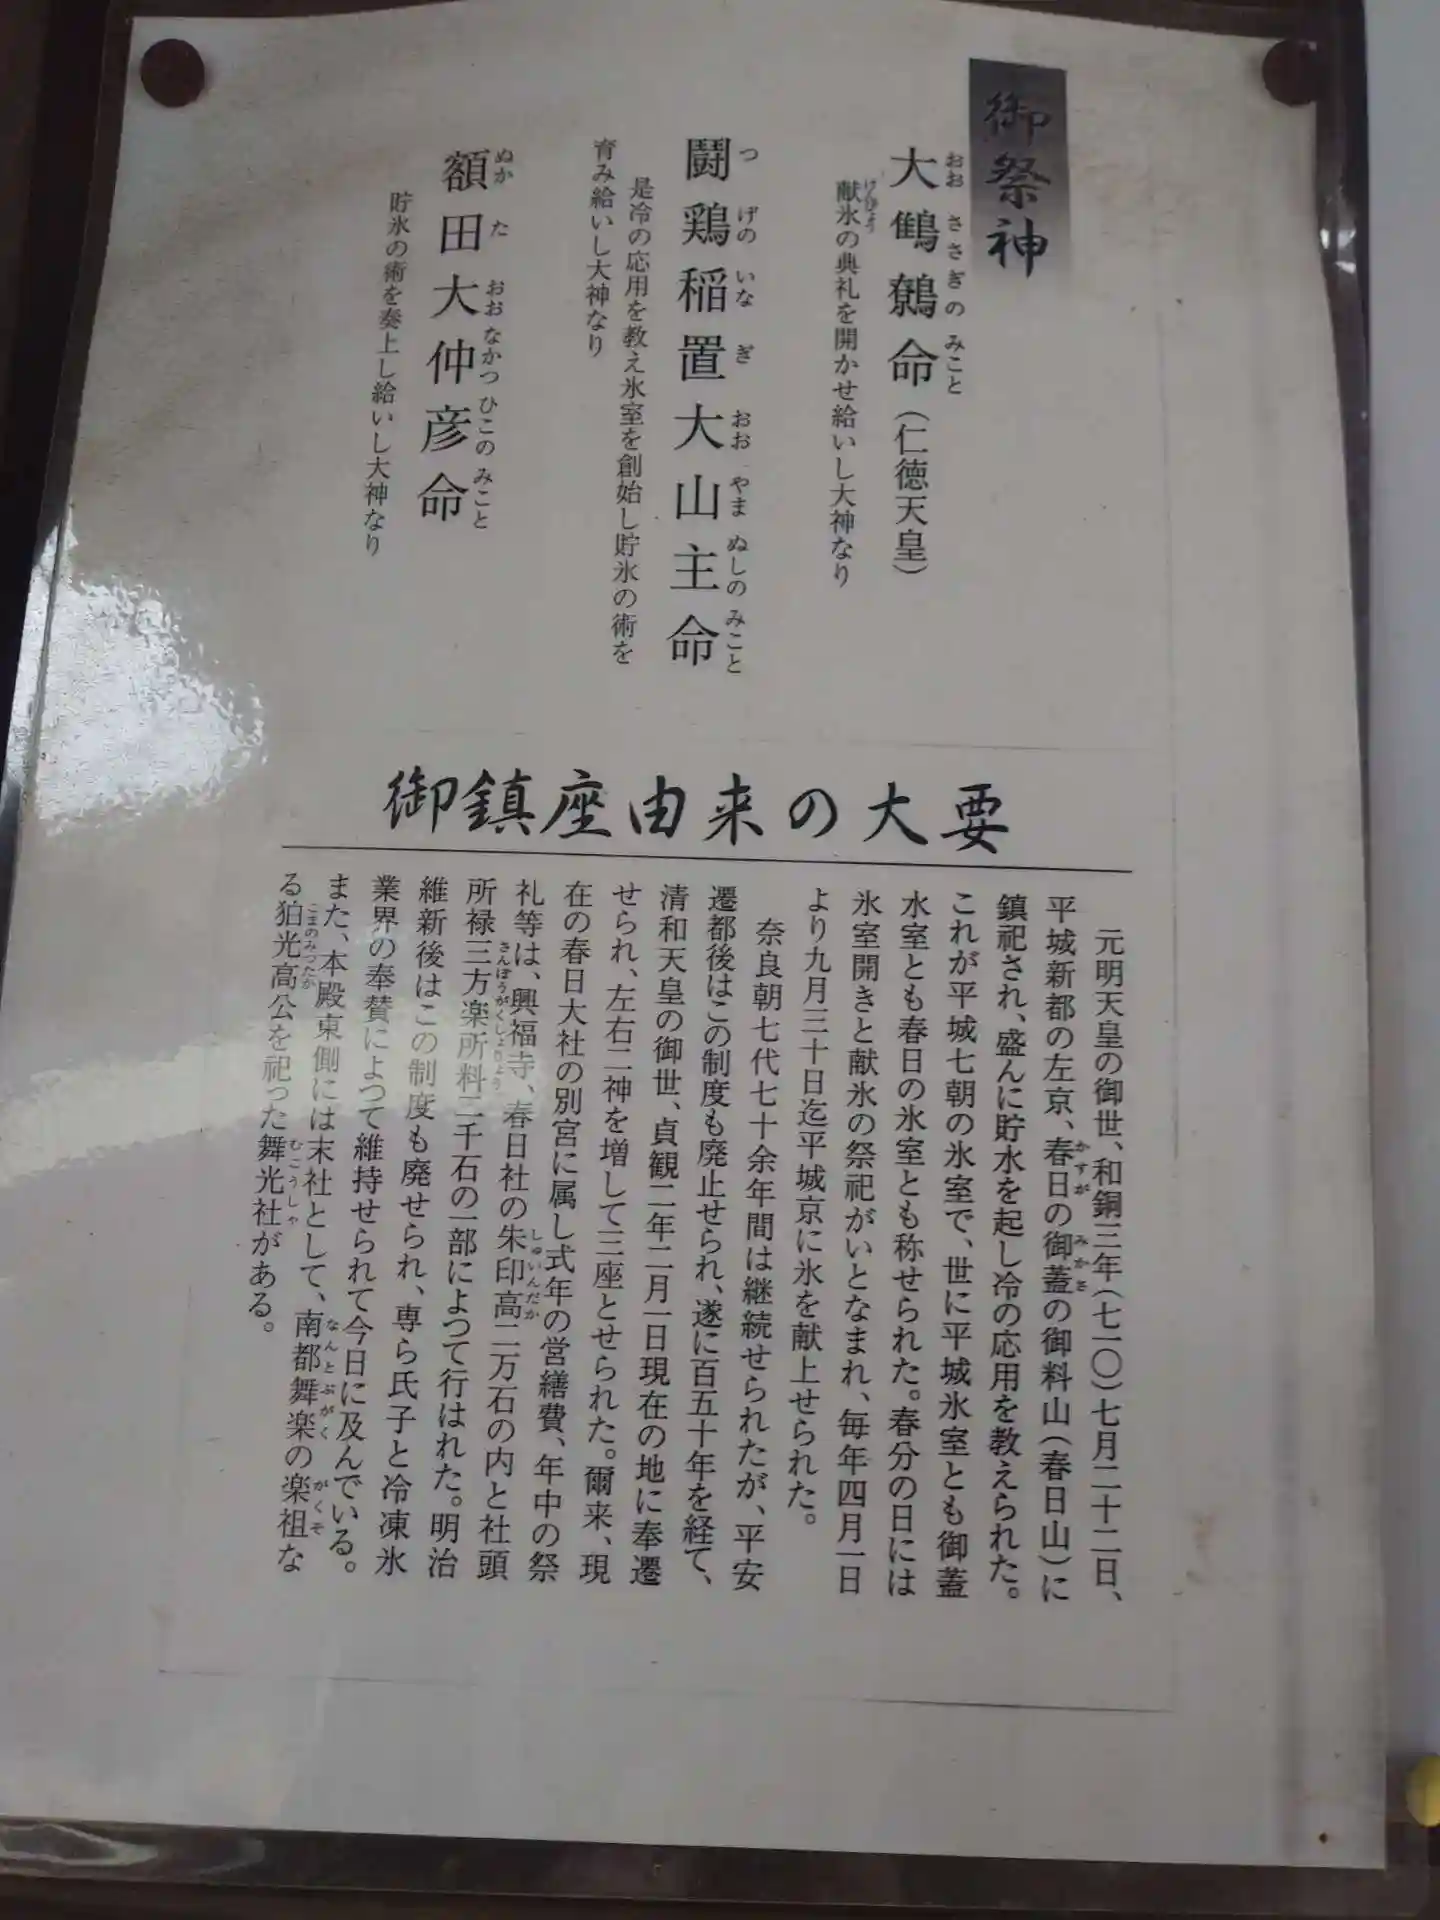 御祭神
大鷦鷯命（仁徳天皇）
献氷の典礼を開かせ給いし大神なり
闘鶏稲置大山主命
是冷の応用を教え氷室を創始し貯氷の術を
育み給いし大神なり
額田大仲彦命
貯氷の術を奏上し給いし大神なり
御鎮座由来の大要
元明天皇の御世、和銅三年（七一〇）七月二十二日、
平城新都の左京、春日の御蓋の御料山（春日山）に
鎮祀され、盛んに貯水を起し冷の応用を教えられた。
これが平城七朝の氷室で、世に平城氷室とも御蓋
氷室とも春日の氷室とも称せられた。春分の日には
氷室開きと献氷の祭祀がいとなまれ、毎年四月一日
より九月三十日迄平城京に氷を献上せられた。
奈良朝七代七十余年間は継続せられたが、平安
遷都後はこの制度も廃止せられ、遂に百五十年を経て、
清和天皇の御世、貞観二年二月一日現在の地に奉遷
せられ、左右二神を増して三座とせられた。爾来、現
在の春日大社の別宮に属し式年の営繕費、年中の祭
礼等は、興福寺、春日社の朱印高二万石の内と社頭
所禄三方楽所料二千石の一部によつて行はれた。明治
維新後はこの制度も廃せられ、専ら氏子と冷凍氷
業界の奉賛によつて維持せられて今日に及んでいる。
また、本殿東側には末社として、南都舞楽の楽祖な
る狛光高公を祀った舞光社がある。